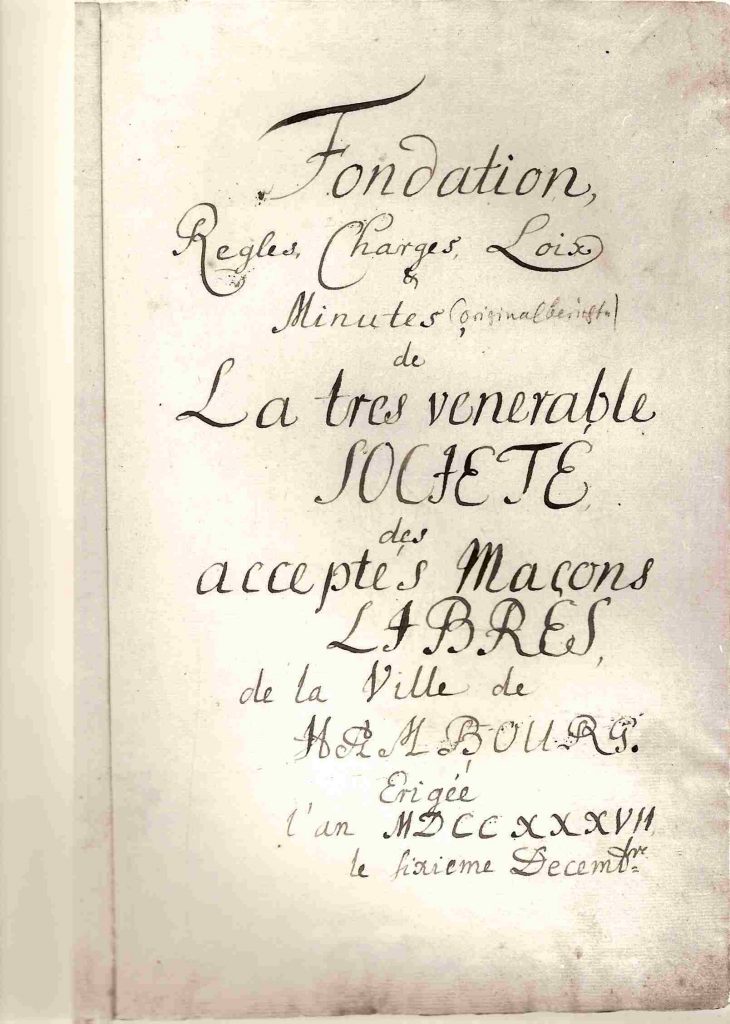 Fondation,
Regles, Charges, Loix
&
Minutes (originalberichte)
de
La tres venerable
SOCIETÉ
des
acceptés Maçons
LIBRES,
de la Ville de
HAMBOURG.
Erigée
l'an MDCCXXXVII
le sixieme Decembre